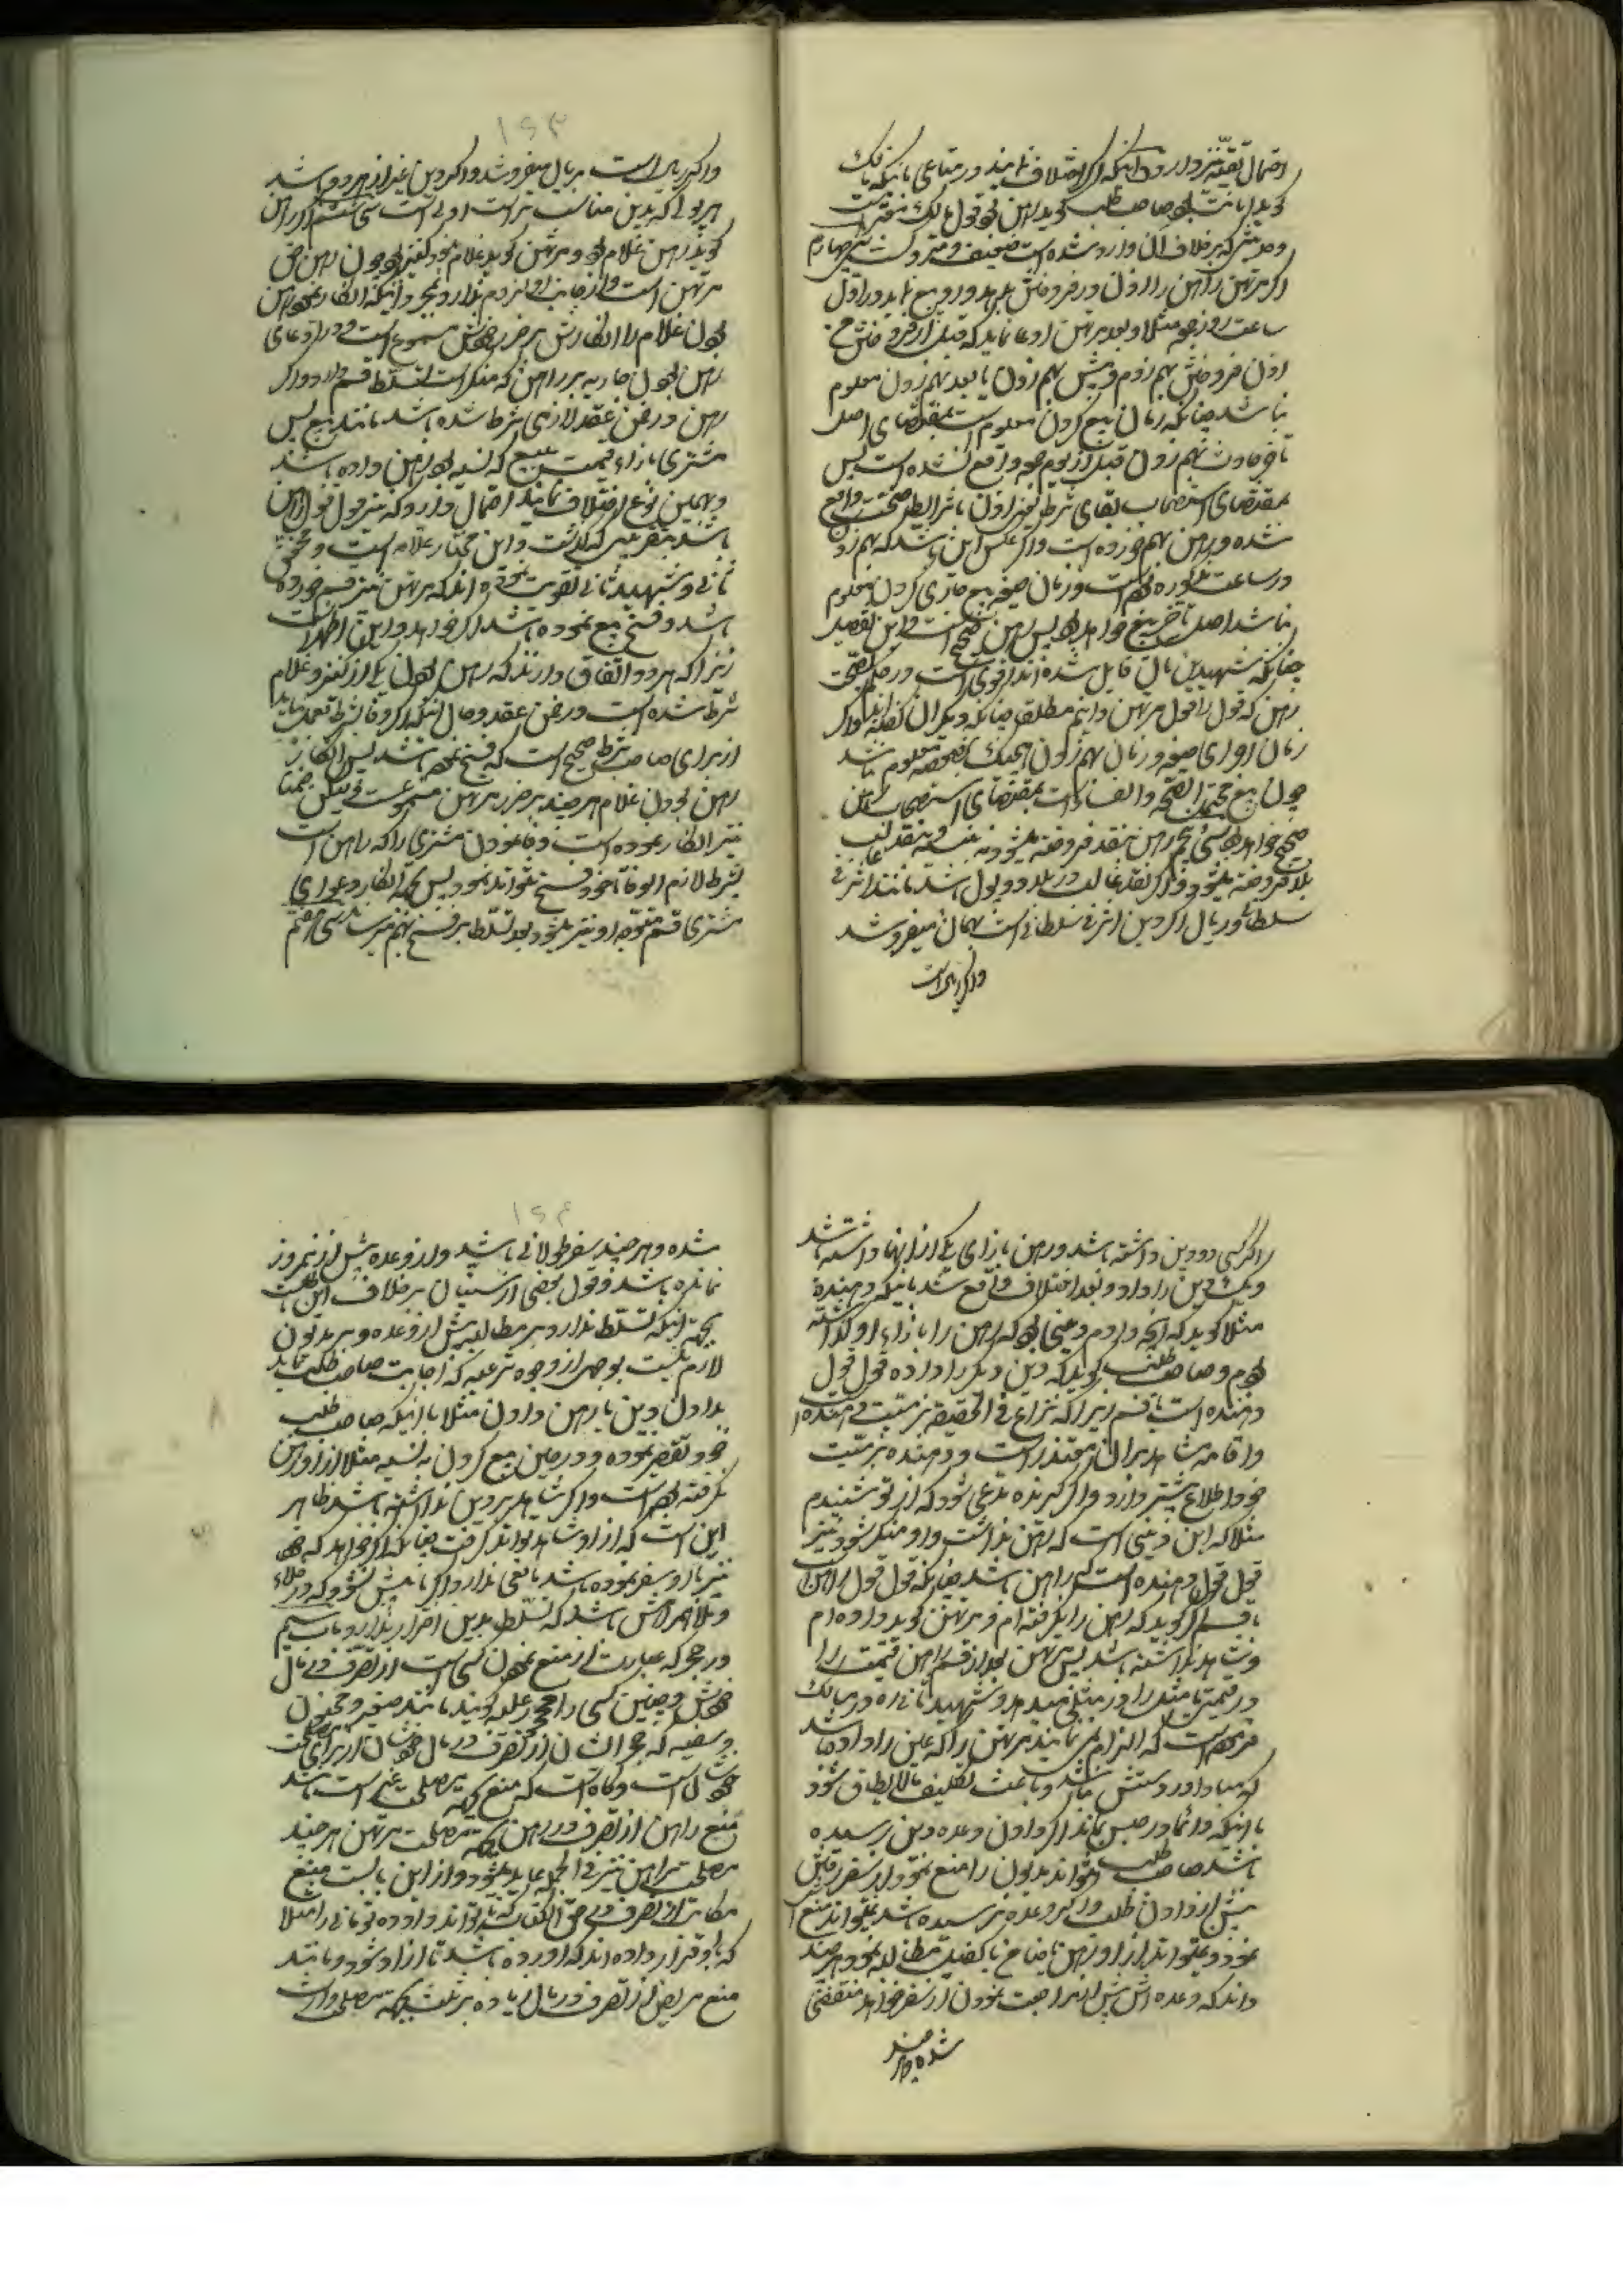 احتمال تقیّه نیز دارد و اینکه اگر اختلاف نمایند در متاعی باینکه مالک
گوید امانت بود و صاحب طلب گوید رهن بود قول مالک معتبر است
و حدیثی که برخلاف آن وارد شده است ضعیف و متروک است سی چهارم
اگر مرتهن راهن را اذن در فروختن بدهد و رجوع نماید در اول
ساعت روز جمعه مثلا و بعد مرتهن ادعا نماید که قبل از فروختن من
اذن فروختن بهم زدم و پیش بهم زدن یا بعد بهم زدن معلوم
نباشد چنانکه زمان بیع کردن معلوم است بمقتضای اصل
تأخر حادث بهم زدن قبل از یوم جمعه واقع نشده است پس
بمقتضای استصحاب بقای شرط یعنی اذن با شرایط صحت واقع
شده و رهن بهم خورده است و اگر عکس این باشد که بهم زدن
در ساعت مذکوره بوده است و زمان صیغه بیع جاری کردن معلوم
نباشد اصل تأخر بیع خواهد بود پس رهن صحیح است و این تفصیل
چنانکه شهیدین بآن قایل شده اند اقوی است در حکم بصحت
رهن که قول را قول مرتهن دانیم مطلق چنانکه دیگران گفته اند و اگر
زمان اجرای صیغه و زمان بهم زدن هیچیک بخصوصه معلوم نباشد
چون بیع محتمل الصحه والفساد است بمقتضای استصحاب رهن
صحیح خواهد بود سی پنجم رهن بنقد فروخته میشود نه بنسیه و بنقد غالب
بلد فروخته میشود و اگر نقد غالب در بلد دو پول باشد مانند اشرفی
سلطانی و ریال اگر دین اشرفی سلطانی است بهمان میفروشد
و اگر ریال است
و اگر ریال است بریال میفروشد و اگر دین غیر از هر دو باشد
بهر پولی که بدین مناسب تر است اولی است سی ششم اگر راهن
گوید رهن غلام بود و مرتهن گوید غلام نبود کنیز بود چون رهن حق
مرتهن است و از جانب او لزوم ندارد بمجرد اینکه انکار نمود رهن
بودن غلام را انکارش بر ضرر خودش مسموع است و در ادعای
رهن بودن جاریه بر راهن که منکر است تسلط قسم دارد و اگر
رهن در ضمن عقد لازمی شرط شده باشد مانند بیع پس
مشتری بازاء قیمت مبیع که نسیه بود رهن داده باشد
و بهمین نوع اختلاف نمایند احتمال دارد که نیز قول قول راهن
باشد بتقریبی که گذشت و این مختار علامه است و محقق
ثانی و شهید ثانی تقویت نموده اند که مرتهن نیز قسم خورده
باشد و فسخ بیع نموده باشد اگر خواهد و این اظهر است
زیرا که هر دو اتفاق دارند که رهن بودن یکی از کنیز و غلام
شرط شده است در ضمن عقد و حال اینکه اگر وفا بشرط بعمل نیاید
از برای صاحب شرط صحیح است که فسخ نموده باشد پس انکار
رهن بودن غلام هر چند بر ضرر مرتهن مسموع است ولیکن ضمنا
نیز انکار نموده است وفا نمودن مشتری را که راهن است
بشرط لازم الوفاء خود و فسخ میتواند نمود پس بجهة انکار دعوای
مشتری قسم متوجه او نیز میشود و بعد تسلط بر فسخ بهم میرساند سی هفتم
اگر کسی دو دین داشته باشد و رهن بازای یکی از اینها داشته باشد
و یک دین را داد و بعد اختلاف واقع شد باینکه دهنده
مثلا گوید که آنچه دادم دینی بود که رهن را بازاء او گذاشته
بودم و صاحب طلب گوید که دین دیگر را داده قول قول
دهنده است با قسم زیرا که نزاع فی الحقیقه در نیت دهنده است
و اقامه شاهد بر آن متعذر است و دهنده بر نیت
خود اطلاع بیشتر دارد و اگر گیرنده مدعی شود که از تو شنیدم
مثلا که این دینی است که رهن نداشت و او منکر شود نیز
قول قول دهنده است که راهن باشد چنانکه قول قول راهن است
با قسم اگر گوید که رهن را نگرفته ام و مرتهن گوید داده ام
و شاهد نداشته باشد پس مرتهن بعد از قسم راهن قیمت را
در قیمتی یا مثل را در مثلی میدهد و شهید ثانی ره در مسالک
فرموده است که الزام می نمایند مرتهن را که عین را داده باشد
که مبادا در دستش باشد و باعث تکلیف ما لا یطاق شود
با اینکه دائما در حبس بماند اگر دادن وعده دین نرسیده
باشد صاحب طلب نمیتواند مدیون را منع نمود از سفر رفتن
پیش از دادن طلب و اگر وعده نرسیده باشد نمیتواند منع
نمود و نمیتواند از او رهن یا ضامن یا کفیل مطالبه نمود هر چند
داند که وعده اش پیش از مراجعت نمودن از سفر خواهد منقضی
شده و هر چند
شده و هر چند سفر طولانی باشد و از وعده بیش از نیمروز
نمانده باشد و قول بعضی از سنیان برخلاف این است
بجهة اینکه تسلط ندارد بر مطالبه پیش از وعده و بر مدیون
لازم نیست بوجهی از وجوه شرعیه که اجابت صاحب طلب نماید
بدادن دین یا رهن دادن مثلا با اینکه صاحب طلب
خود تقصیر نموده و در حین بیع کردن به نسیه مثلا از او رهن
نگرفته بوده است و اگر شاهد بر دین نداشته باشد ظاهر
این است که از او شاهد تواند گرفت چنانکه اگر خواهد که خود
نیز با او سفر نموده باشد مانعی ندارد اگر باعث نشود که در خلاء
و ملا همراهش باشد که تسلط بدین اضرار ندارد باب سیم
در حجر که عبارت از منع نمودن کسی است از تصرف در مال
خودش و چنین کسی را محجور علیه گویند مانند صغیر و مجنون
و سفیه که حجر ایشان از تصرف در مال خودشان از برای مصلحت
خودشان است و گاه است که منع بجهة مصلحت غیر است مانند
منع راهن از تصرف در رهن بجهة مصلحت مرتهن هر چند
مصلحت راهن نیز فی الجمله عاید میشود و از این باب است منع
مکاتب از تصرف در حق الکتابه که تا تواند داده ده تومانی را مثلا
که با او قرار داده اند که آورده باشد تا آزاد شود و مانند
منع مریض از تصرف در مال زیاده بر ثلث بجهة مصلحت وارث